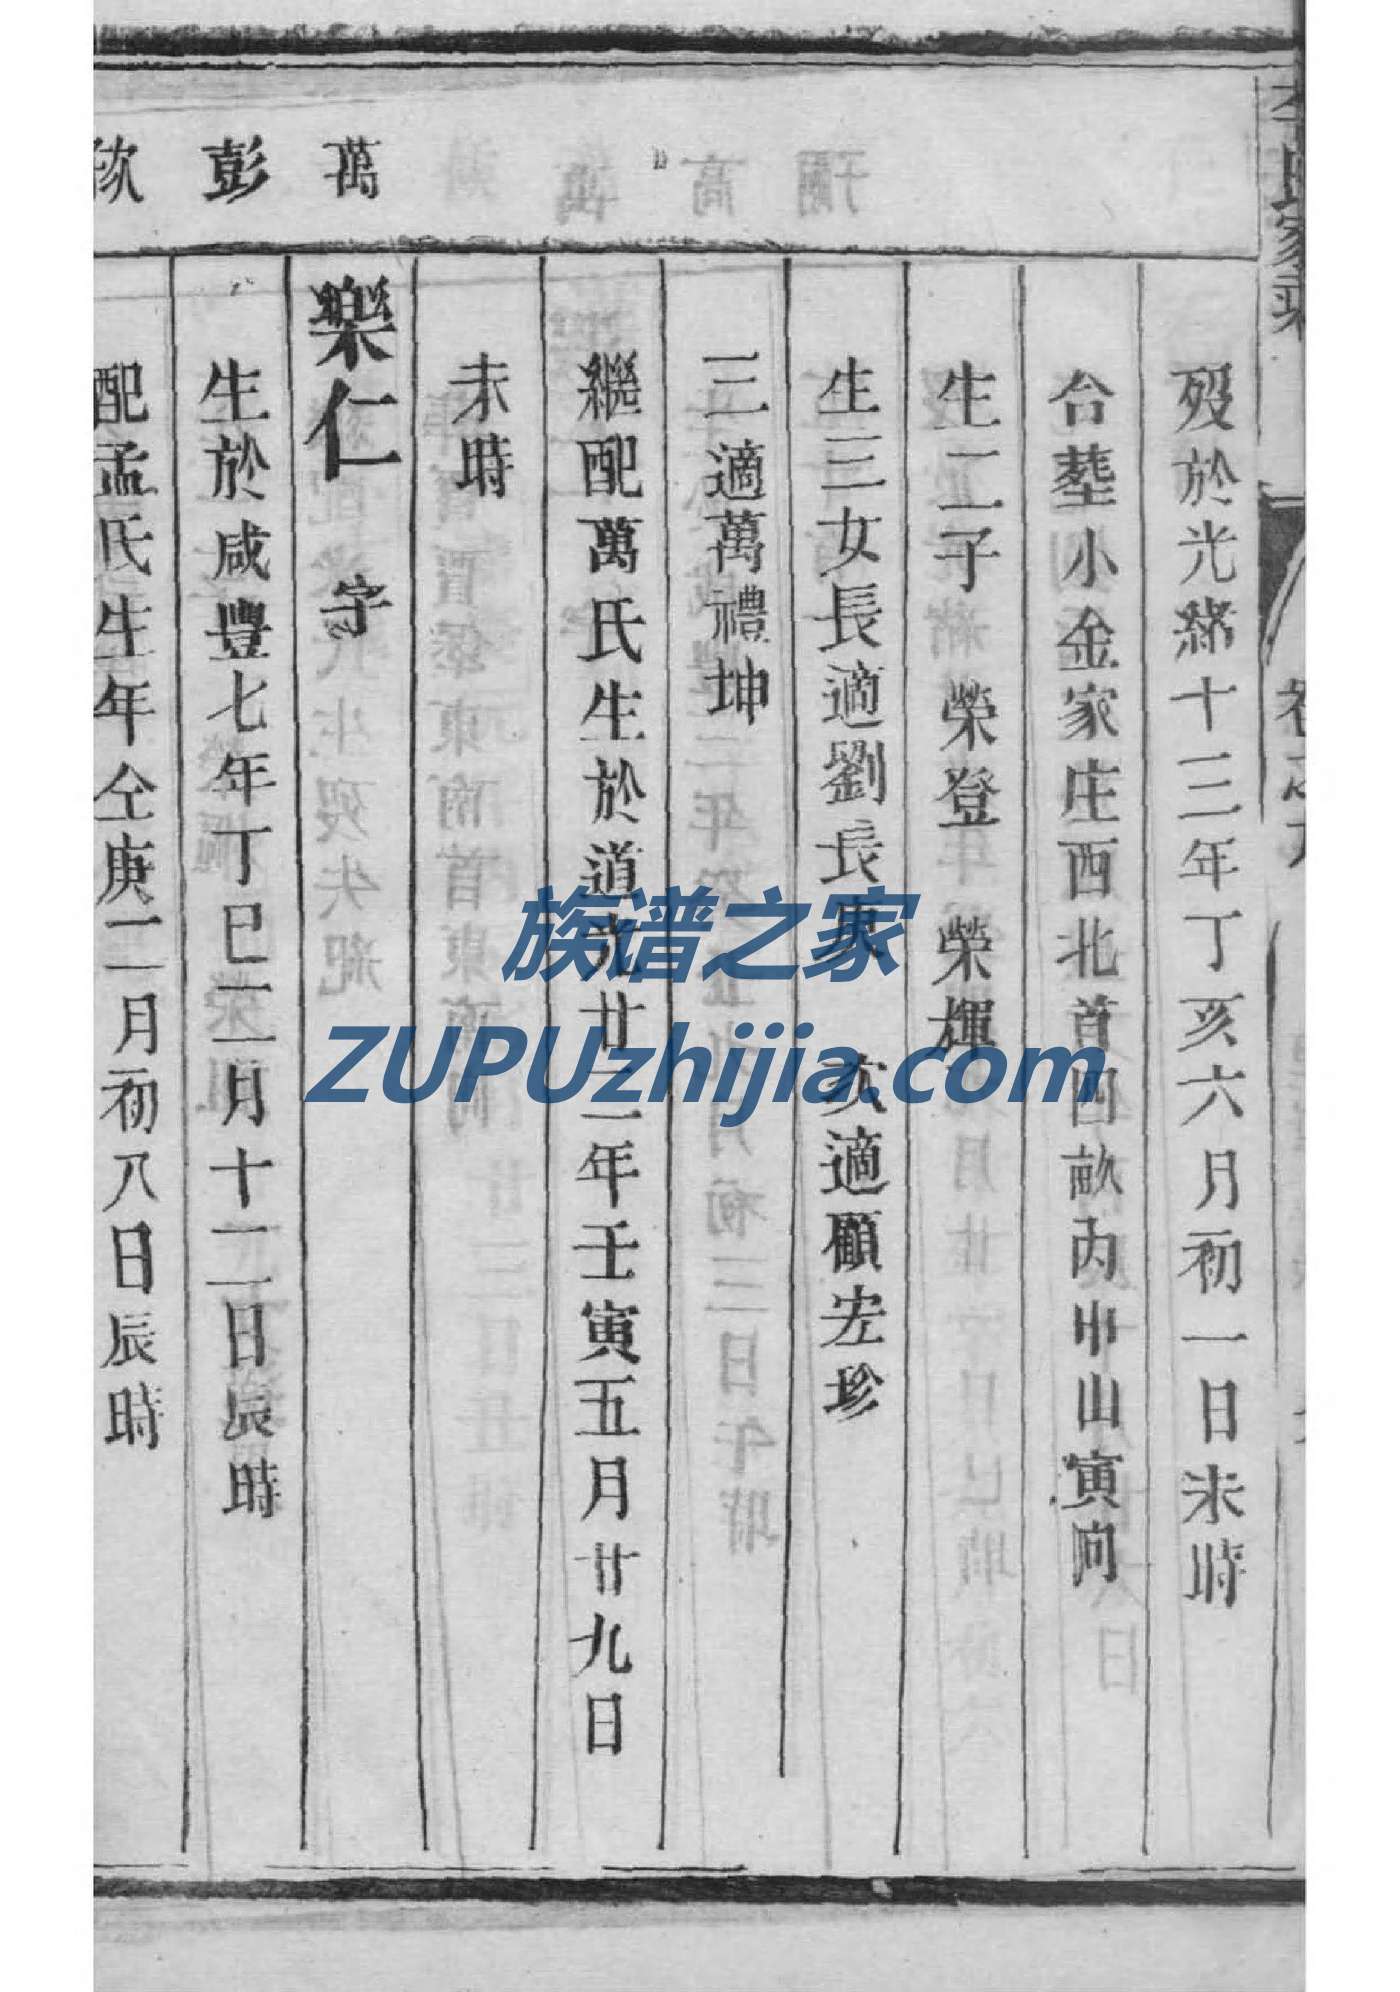 氏家乘
歿於光緒十三年丁亥六月初一日未時
合塟小金家庄西北首四畝丙申山寅向
生二子 榮登 榮輝
生三女長適劉長庚 次適顧宏珍
三適萬禮坤
繼配萬氏生於道光廿二年壬寅五月廿九日
未時
萬 彭
樂仁 字
生於咸豐七年丁巳二月十二日辰時
配孟氏生年仝庚二月初八日辰時
族谱之家
ZUPUzhijia.com